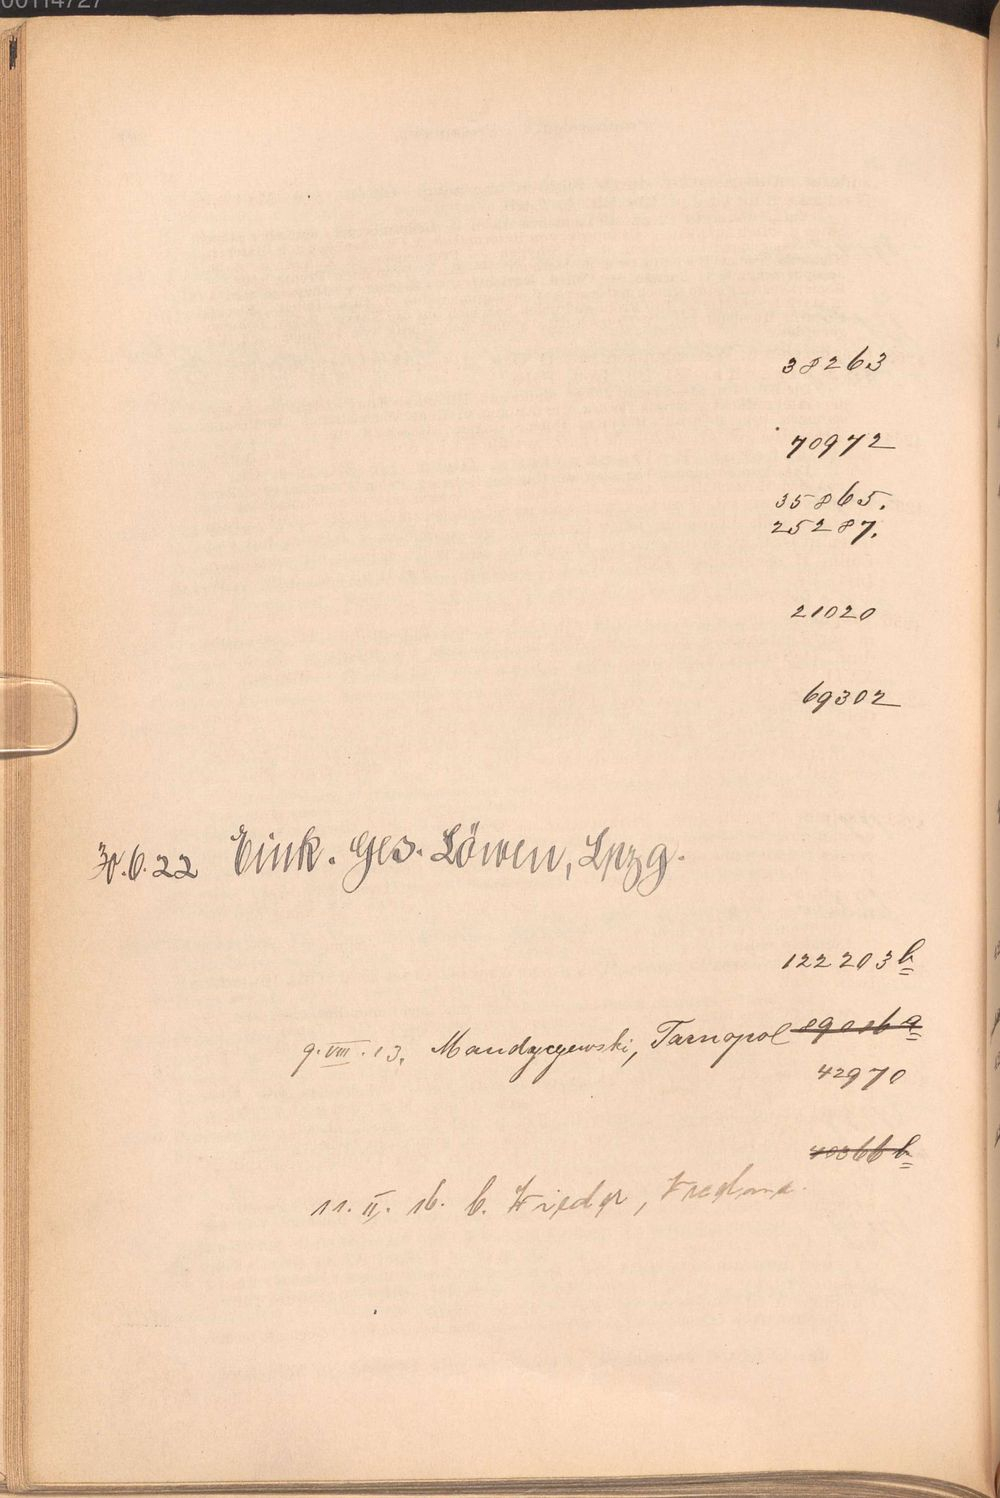 00114727
38263
70972
35865.
25287.
21020
69302
30.6.22 Eink. Ges. Löwen, Lpzg.
122203 b
9. VIII. 13. Mandyczewski, Tarnopol 89016 a
42970
40366 b
11. II. 16. C.